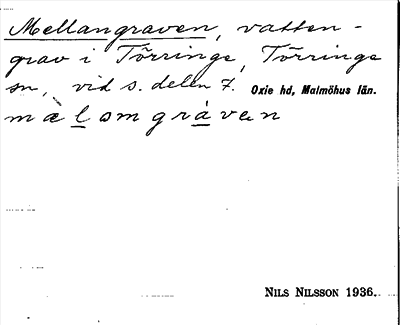 Mellangraven, vatten-
grav i Törringe, Törringe
sn, vid s. delen 7. Oxie hd, Malmöhus län.
mælamgråven
NILS NILSSON 1936.